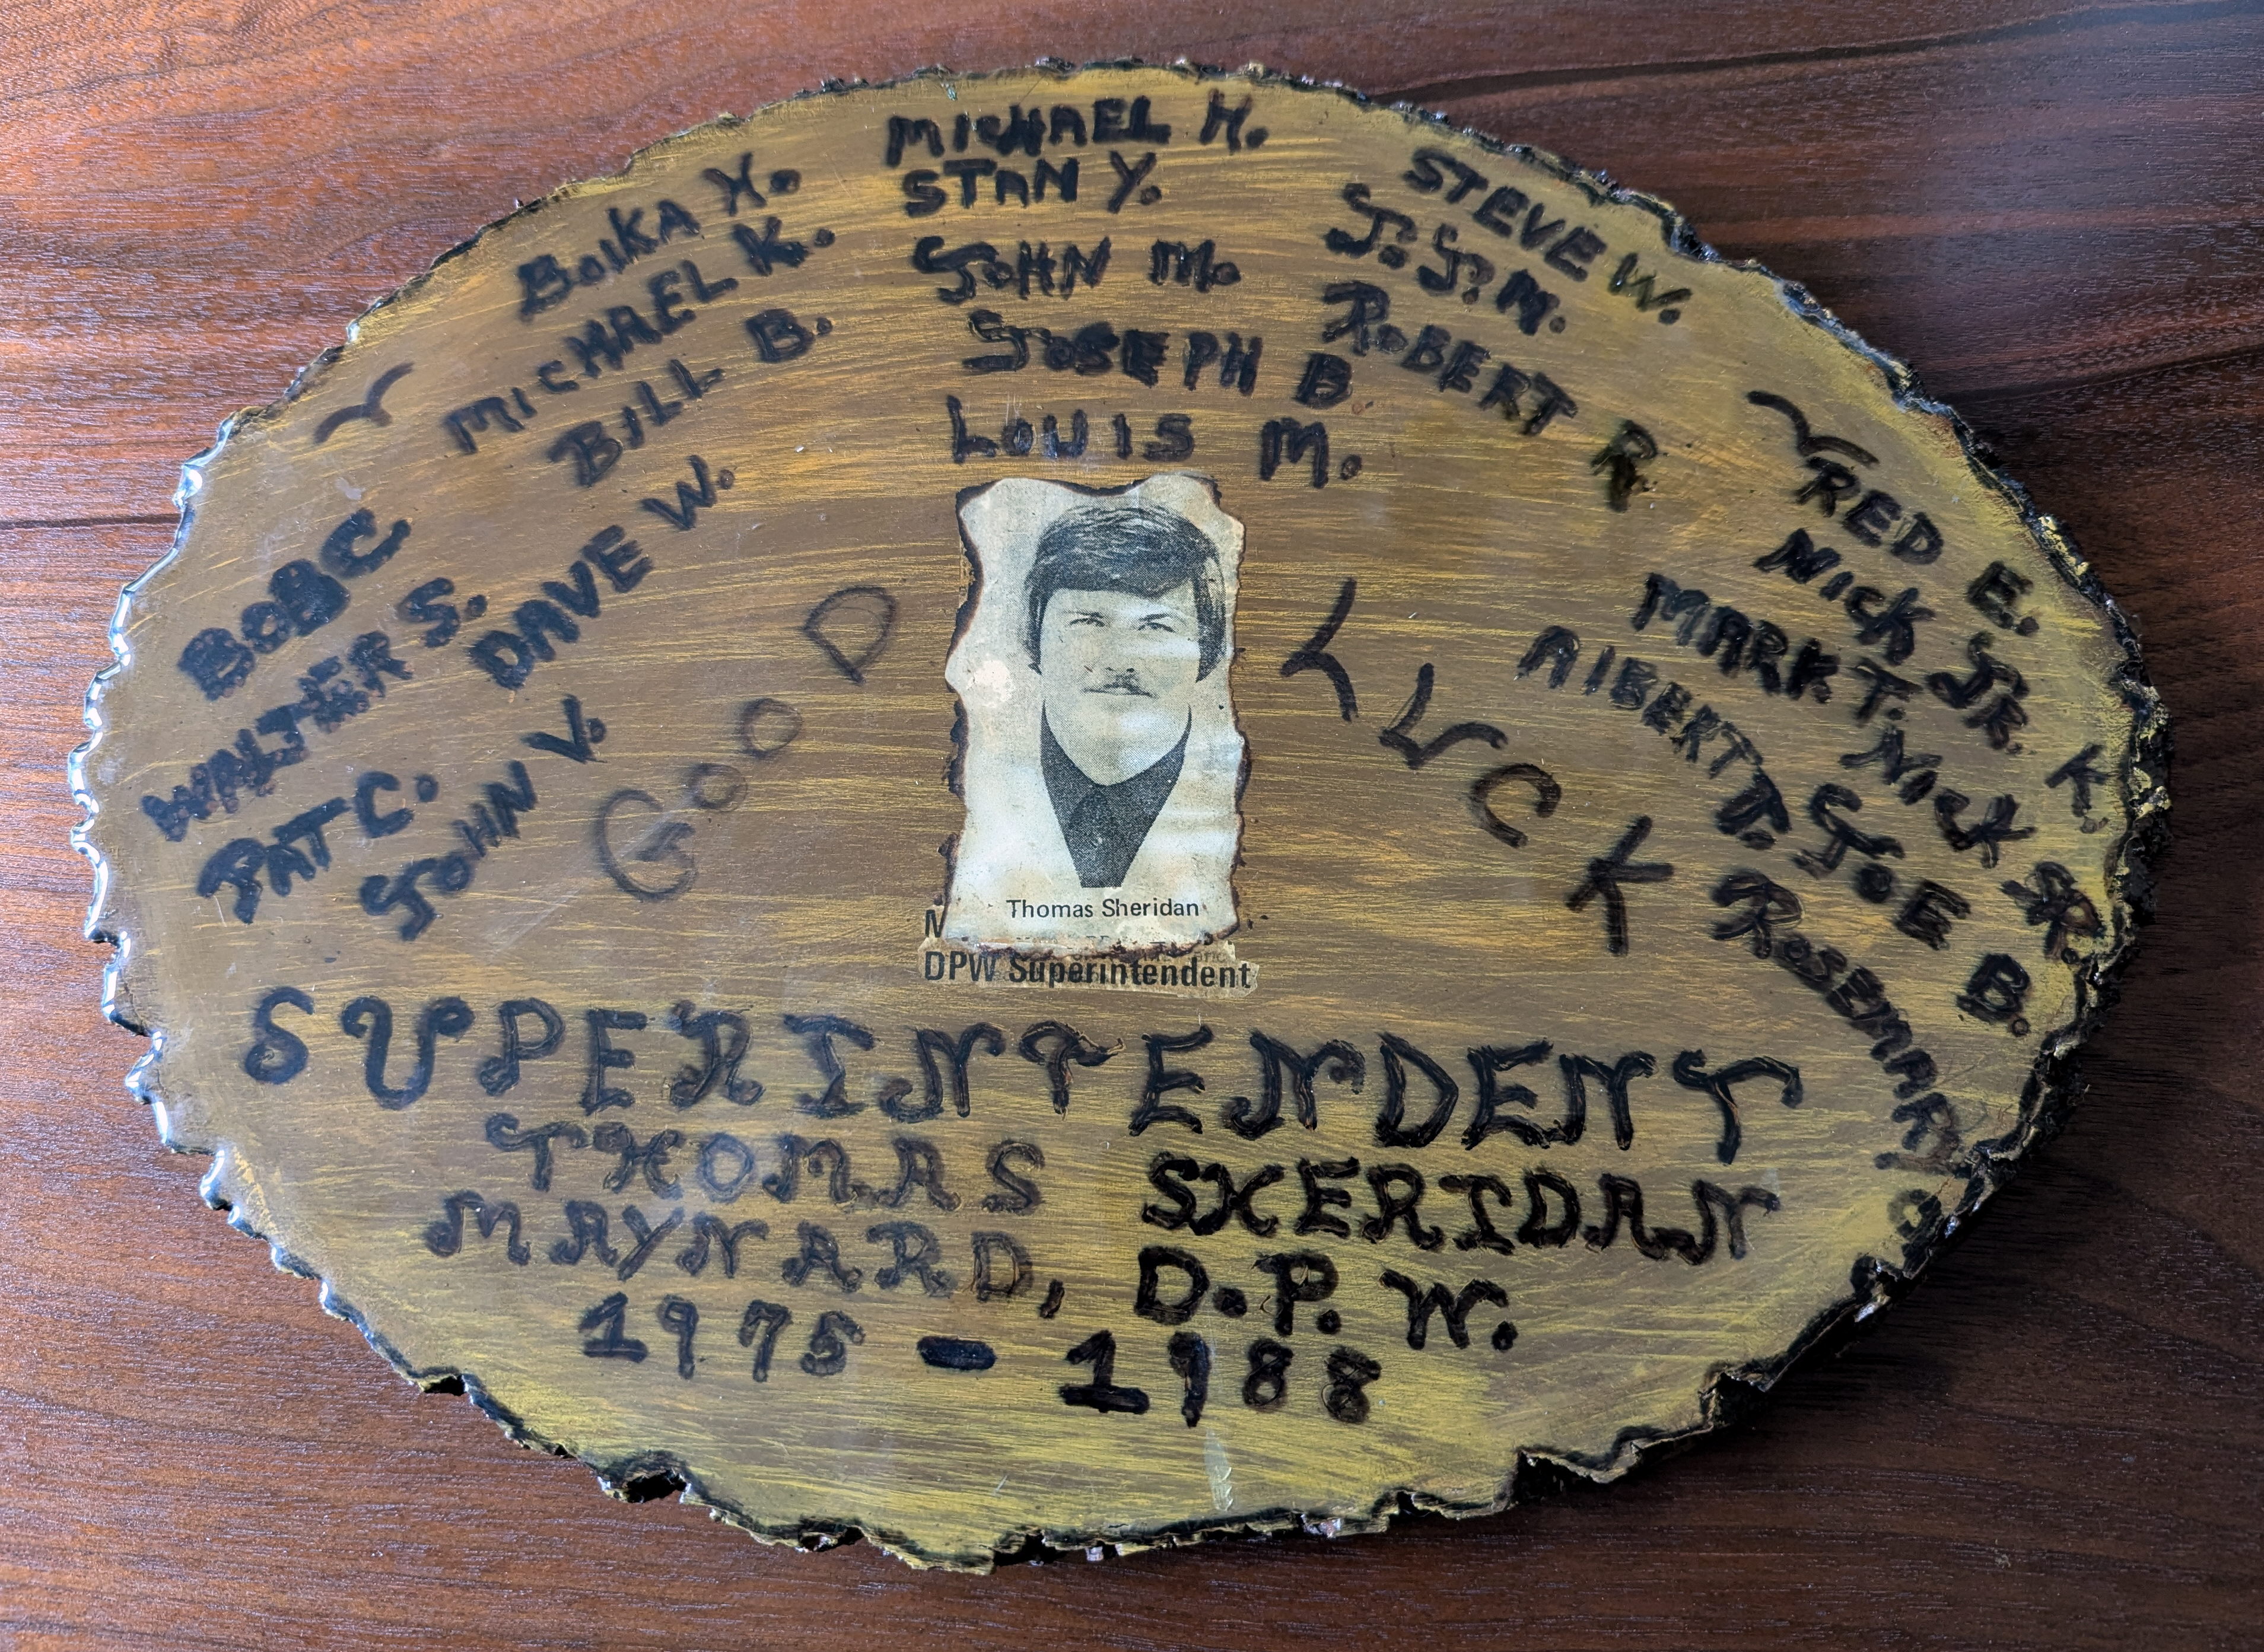 MICHAEL H.
STAN Y.
JOHN M.
JOSEPH B.
LOUIS M.
BOIKA H.
MICHAEL K.
BILL B.
DAVE W.
BOB C
WALTER S.
PAT C.
JOHN V.
STEVE W.
J.J.M.
ROBERT R.
RED E.
NICK JR. K.
MARK T.
NICK SR.
ALBERT T.
JOE B.
ROSEMARY
GOOD LUCK
Thomas Sheridan
DPW Superintendent
SUPERINTENDENT
THOMAS SHERIDAN
MAYNARD, D.P.W.
1975 - 1988